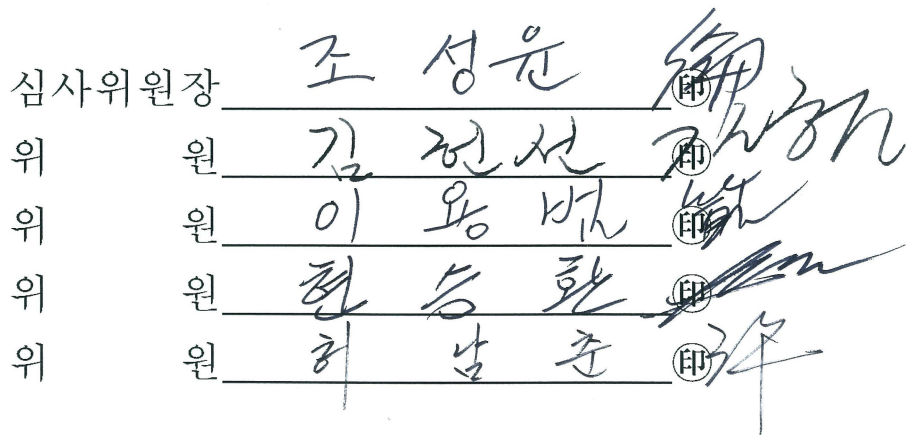 심사위원장 조 성 윤 ㊞
위 원 김 헌 선 ㊞
위 원 이 용 범 ㊞
위 원 현 승 환 ㊞
위 원 허 남 춘 ㊞ 許